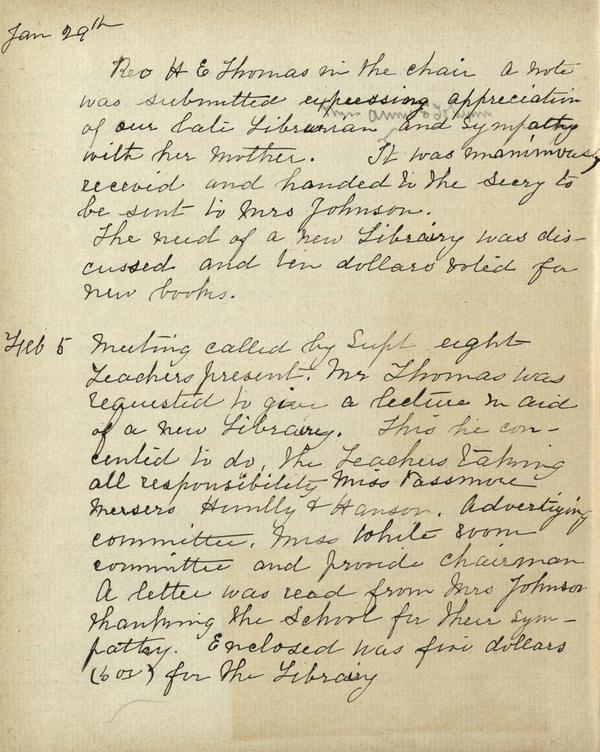 Jan 29th
Rev H E Thomas in the chair A note
was submitted expressing appreciation
of our late Librarian and sympathy
with her mother. It was unanimously
received and handed to the secry to
be sent to Mrs Johnson.
The need of a new Library was dis-
cussed and ten dollars voted for
new books.
Feb 5 Meeting called by Supt eight
Teachers present. Mr Thomas was
requested to give a lecture in aid
of a new Library. This he con-
cented to do, the Teachers taking
all responsibility Miss Passmore
Messers Huntly & Hanson. Advertiging
committee. Miss White room
committee and provide chairman
A letter was read from Mrs Johnson
thanking the School for their sym-
pathy. Enclosed was five dollars
(500) for the Library